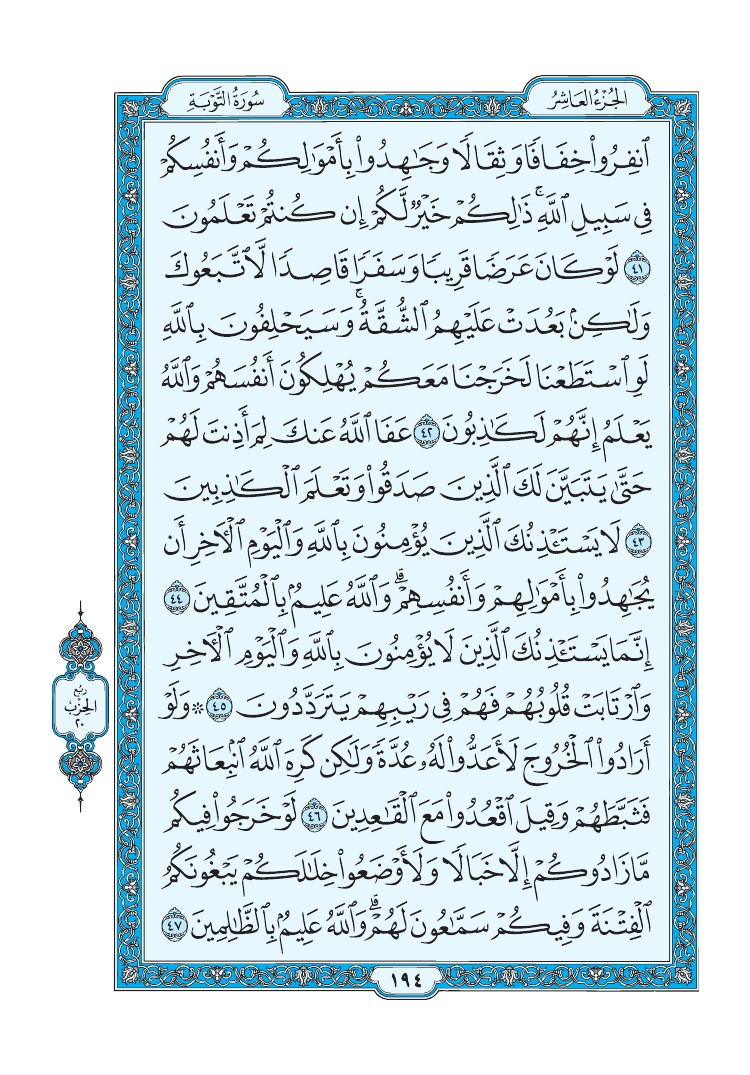 الجُزْءُ العَاشِرُ
سُورَةُ التَّوْبَةِ
ٱنفِرُوا۟ خِفَافًا وَثِقَالًا وَجَٰهِدُوا۟ بِأَمْوَٰلِكُمْ وَأَنفُسِكُمْ
فِى سَبِيلِ ٱللَّهِ ۚ ذَٰلِكُمْ خَيْرٌ لَّكُمْ إِن كُنتُمْ تَعْلَمُونَ
٤١ لَوْ كَانَ عَرَضًا قَرِيبًا وَسَفَرًا قَاصِدًا لَّٱتَّبَعُوكَ
وَلَٰكِنۢ بَعُدَتْ عَلَيْهِمُ ٱلشُّقَّةُ ۚ وَسَيَحْلِفُونَ بِٱللَّهِ
لَوِ ٱسْتَطَعْنَا لَخَرَجْنَا مَعَكُمْ يُهْلِكُونَ أَنفُسَهُمْ وَٱللَّهُ
يَعْلَمُ إِنَّهُمْ لَكَٰذِبُونَ ٤٢ عَفَا ٱللَّهُ عَنكَ لِمَ أَذِنتَ لَهُمْ
حَتَّىٰ يَتَبَيَّنَ لَكَ ٱلَّذِينَ صَدَقُوا۟ وَتَعْلَمَ ٱلْكَٰذِبِينَ
٤٣ لَا يَسْتَـْٔذِنُكَ ٱلَّذِينَ يُؤْمِنُونَ بِٱللَّهِ وَٱلْيَوْمِ ٱلْـَٔاخِرِ أَن
يُجَٰهِدُوا۟ بِأَمْوَٰلِهِمْ وَأَنفُسِهِمْ ۗ وَٱللَّهُ عَلِيمٌۢ بِٱلْمُتَّقِينَ ٤٤
إِنَّمَا يَسْتَـْٔذِنُكَ ٱلَّذِينَ لَا يُؤْمِنُونَ بِٱللَّهِ وَٱلْيَوْمِ ٱلْـَٔاخِرِ
وَٱرْتَابَتْ قُلُوبُهُمْ فَهُمْ فِى رَيْبِهِمْ يَتَرَدَّدُونَ ٤٥ * وَلَوْ
أَرَادُوا۟ ٱلْخُرُوجَ لَأَعَدُّوا۟ لَهُۥ عُدَّةً وَلَٰكِن كَرِهَ ٱللَّهُ ٱنۢبِعَاثَهُمْ
فَثَبَّطَهُمْ وَقِيلَ ٱقْعُدُوا۟ مَعَ ٱلْقَٰعِدِينَ ٤٦ لَوْ خَرَجُوا۟ فِيكُم
مَّا زَادُوكُمْ إِلَّا خَبَالًا وَلَأَوْضَعُوا۟ خِلَٰلَكُمْ يَبْغُونَكُمُ
ٱلْفِتْنَةَ وَفِيكُمْ سَمَّٰعُونَ لَهُمْ ۗ وَٱللَّهُ عَلِيمٌۢ بِٱلظَّٰلِمِينَ ٤٧
ربع
الحزب
٢٠
١٩٤